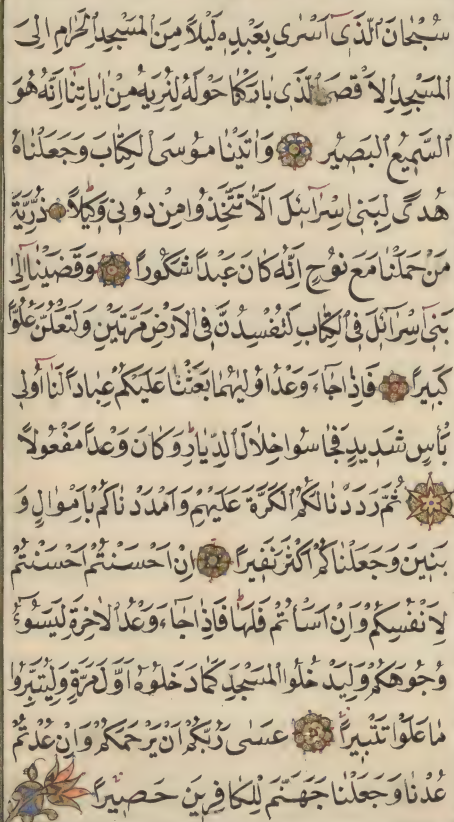 سُبْحَانَ الَّذِي أَسْرَى بِعَبْدِهِ لَيْلًا مِنَ الْمَسْجِدِ الْحَرَامِ إِلَى
الْمَسْجِدِ الْأَقْصَى الَّذِي بَارَكْنَا حَوْلَهُ لِنُرِيَهُ مِنْ آيَاتِنَا إِنَّهُ هُوَ
السَّمِيعُ الْبَصِيرُ وَآتَيْنَا مُوسَى الْكِتَابَ وَجَعَلْنَاهُ
هُدًى لِبَنِي إِسْرَائِلَ أَلَّا تَتَّخِذُوا مِنْ دُونِي وَكِيلًا ذُرِّيَّةَ
مَنْ حَمَلْنَا مَعَ نُوحٍ إِنَّهُ كَانَ عَبْدًا شَكُورًا وَقَضَيْنَا إِلَى
بَنِي إِسْرَائِلَ فِي الْكِتَابِ لَتُفْسِدُنَّ فِي الْأَرْضِ مَرَّتَيْنِ وَلَتَعْلُنَّ عُلُوًّا
كَبِيرًا فَإِذَا جَاءَ وَعْدُ أُولَيهُمَا بَعَثْنَا عَلَيْكُمْ عِبَادًا لَنَا أُولِي
بَأْسٍ شَدِيدٍ فَجَاسُوا خِلَالَ الدِّيَارِ وَكَانَ وَعْدًا مَفْعُولًا
ثُمَّ رَدَدْنَا لَكُمُ الْكَرَّةَ عَلَيْهِمْ وَأَمْدَدْنَاكُمْ بِأَمْوَالٍ وَ
بَنِينَ وَجَعَلْنَاكُمْ أَكْثَرَ نَفِيرًا إِنْ أَحْسَنْتُمْ أَحْسَنْتُمْ
لِأَنْفُسِكُمْ وَإِنْ أَسَأْتُمْ فَلَهَا فَإِذَا جَاءَ وَعْدُ الْآخِرَةِ لِيَسُوءُ
وُجُوهَكُمْ وَلِيَدْخُلُوا الْمَسْجِدَ كَمَا دَخَلُوهُ أَوَّلَ مَرَّةٍ وَلِيُتَبِّرُوا
مَا عَلَوْا تَتْبِيرًا عَسَى رَبُّكُمْ أَنْ يَرْحَمَكُمْ وَإِنْ عُدْتُمْ
عُدْنَا وَجَعَلْنَا جَهَنَّمَ لِلْكَافِرِينَ حَصِيرًا